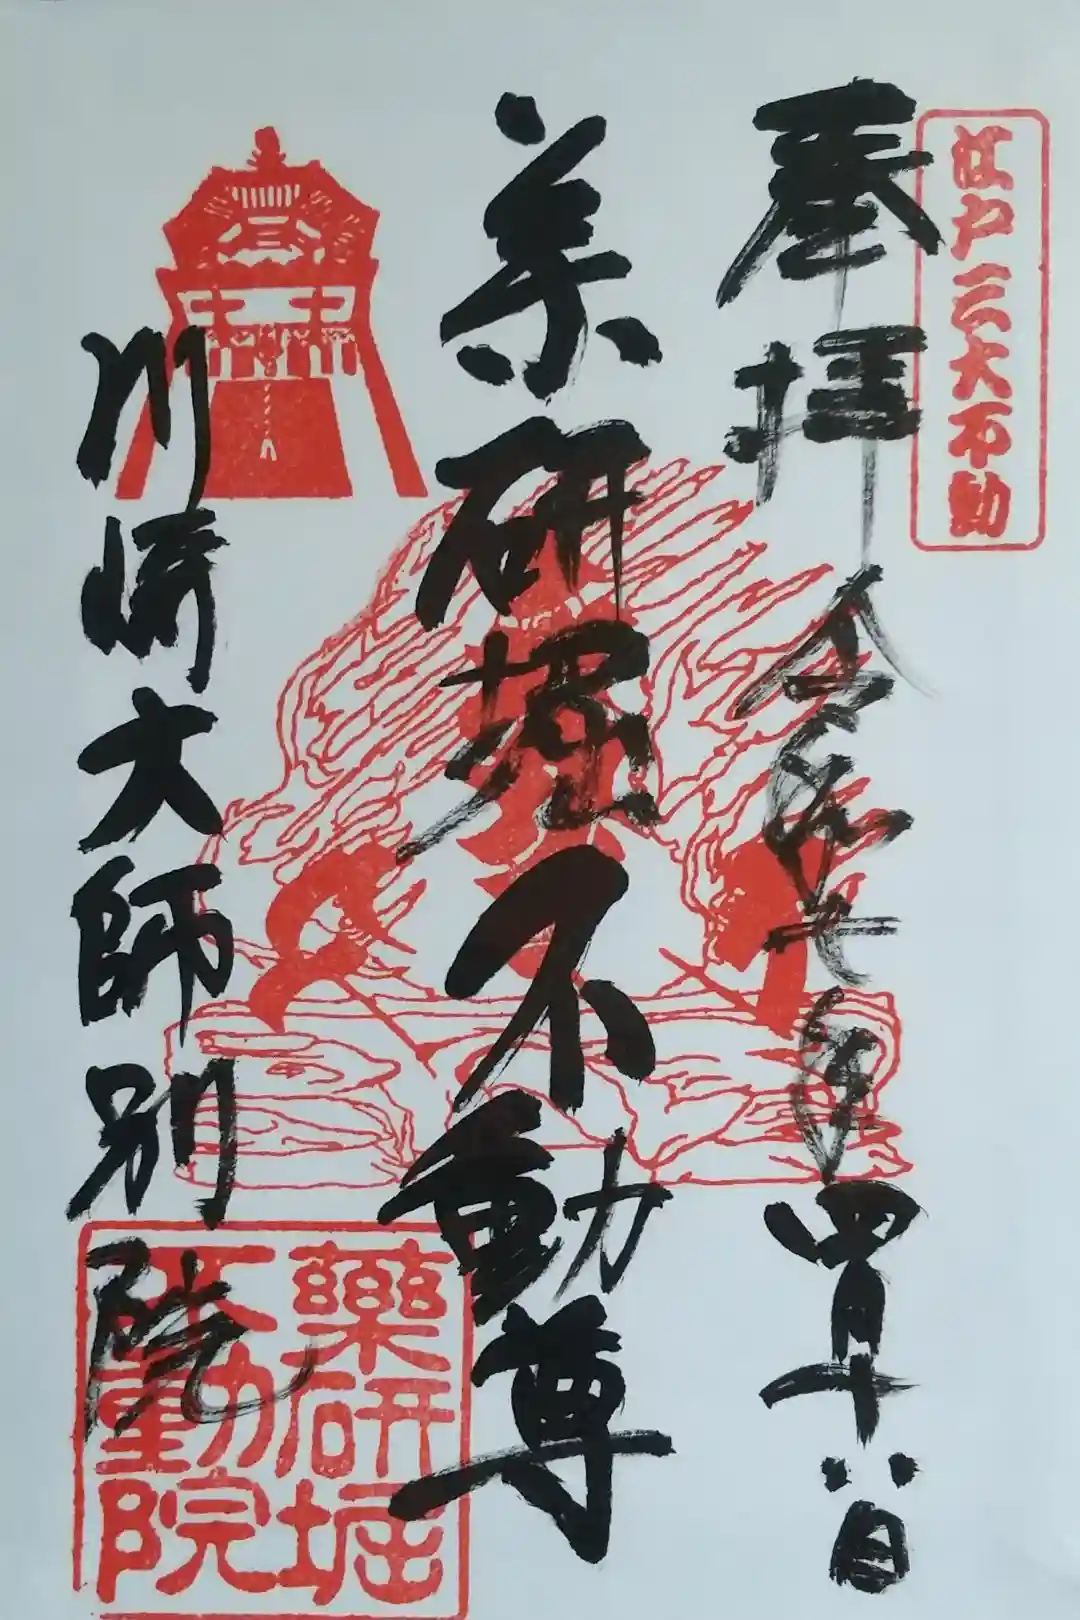 江戸三大不動
奉拝 令和七年四月十八日
薬研堀不動尊
川崎大師別院
藥研堀
不動院